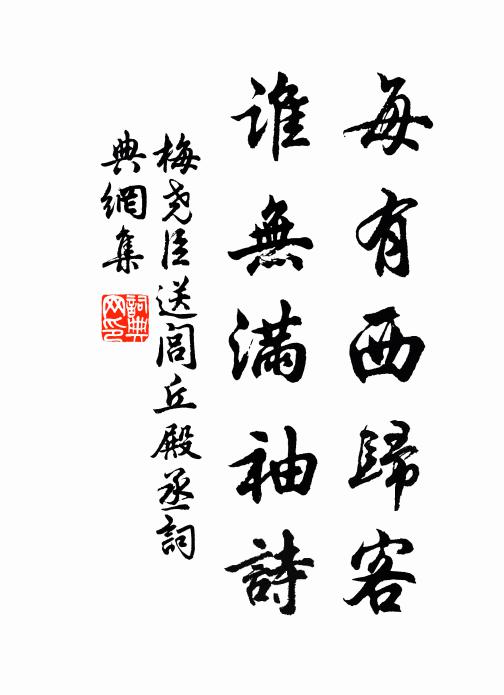 每有西歸客
誰無滿袖詩
梅堯臣送閭丘殿丞詞
典網集
詞典网印